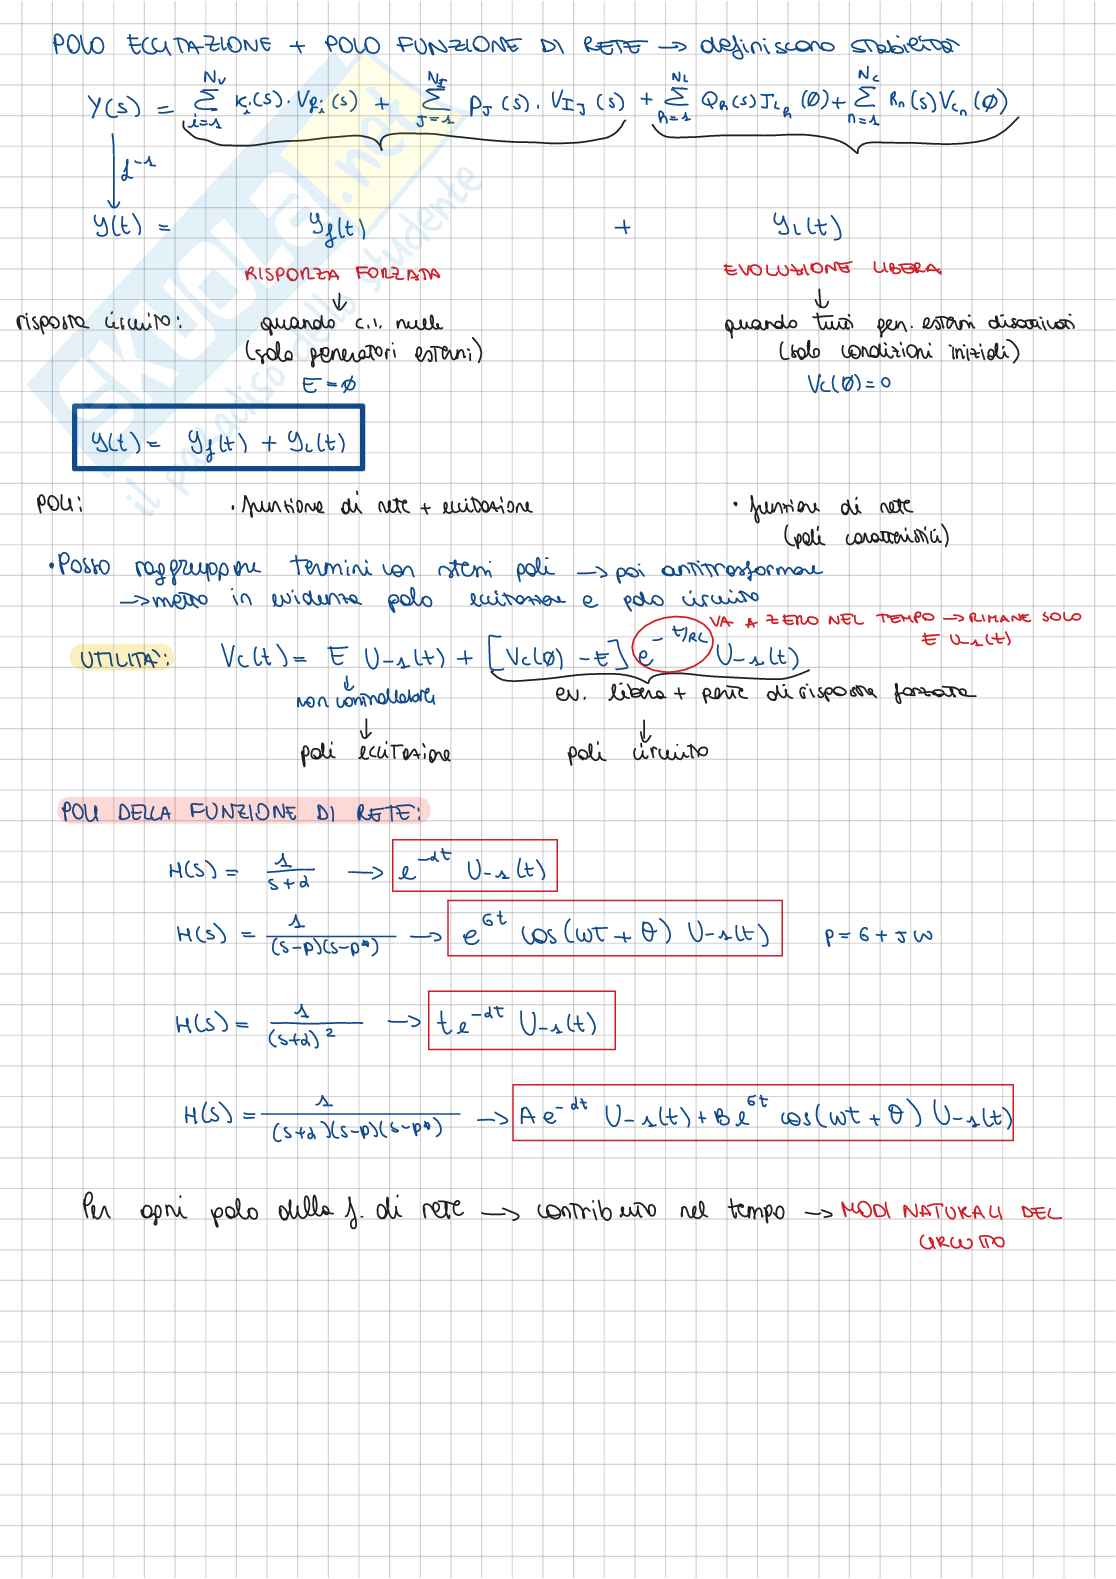 POLO ECCITAZIONE + POLO FUNZIONE DI RETE → definiscono stabilità
Y(s) = Σ_{i=1}^{Nv} Ki(s)·V_{Ri}(s) + Σ_{J=1}^{N_I} P_J(s)·V_{IJ}(s) + Σ_{R=1}^{NL} Q_R(s) J_{LR}(Ø) + Σ_{n=1}^{Nc} R_n(s) V_{Cn}(Ø)
ℒ^{-1}
y(t) = y_f(t) + y_L(t)
RISPOSTA FORZATA EVOLUZIONE LIBERA
risposta circuito: quando c.i. nulle quando tutti gen. esterni disattivati
(solo generatori esterni) (solo condizioni iniziali)
E = Ø Vc(Ø) = 0
y(t) = y_f(t) + y_L(t)
POLI: • funzione di rete + eccitazione • funzione di rete
(poli caratteristici)
• Posso raggruppare termini con stessi poli → poi antitrasformare
→ metto in evidenza polo eccitazione e polo circuito
VA A ZERO NEL TEMPO → RIMANE SOLO
E U-1(t)
UTILITA': Vc(t) = E U-1(t) + [Vc(Ø) - E] e^{-t/RC} U-1(t)
non controllabile ev. libera + parte di risposta forzata
poli eccitazione poli circuito
POLI DELLA FUNZIONE DI RETE:
H(s) = 1/(s+α) → e^{-αt} U-1(t)
H(s) = 1/((s-p)(s-p*)) → e^{σt} cos(ωt + θ) U-1(t) p = σ + jω
H(s) = 1/(s+α)² → t e^{-αt} U-1(t)
H(s) = 1/((s+α)(s-p)(s-p*)) → A e^{-αt} U-1(t) + B e^{σt} cos(ωt + θ) U-1(t)
Per ogni polo della f. di rete → contributo nel tempo → MODI NATURALI DEL
CIRCUITO
SKUOLA.net
il paradiso dello studente